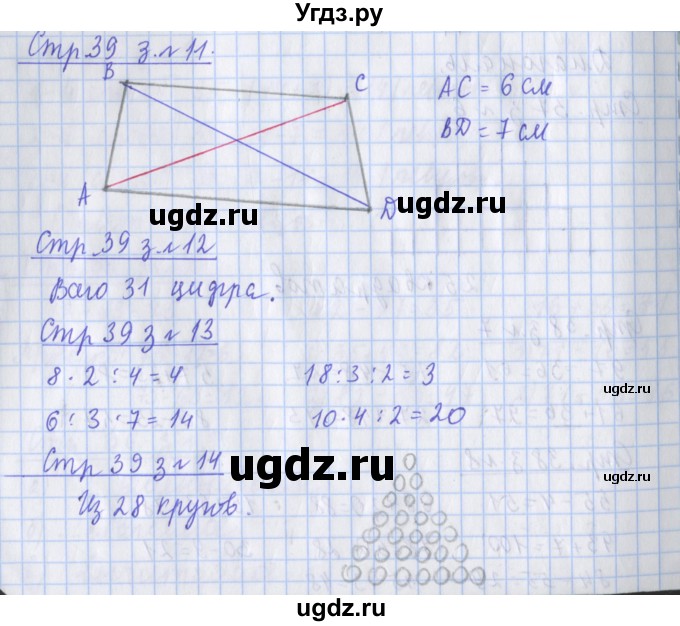 Угдз.ру
Стр 39 з.№11.
B
C
A
D
AC = 6 см
BD = 7 см
ugdz.ru
ugdz.ru
Стр. 39 з.№12
Всего 31 цифра.
Стр 39 з №13
8 · 2 : 4 = 4
18 : 3 : 2 = 3
ugdz.ru
6 : 3 · 7 = 14
10 · 4 : 2 = 20
Стр 39 з №14
ugdz.ru
Из 28 кругов.
ugdz.ru
ugdz.ru